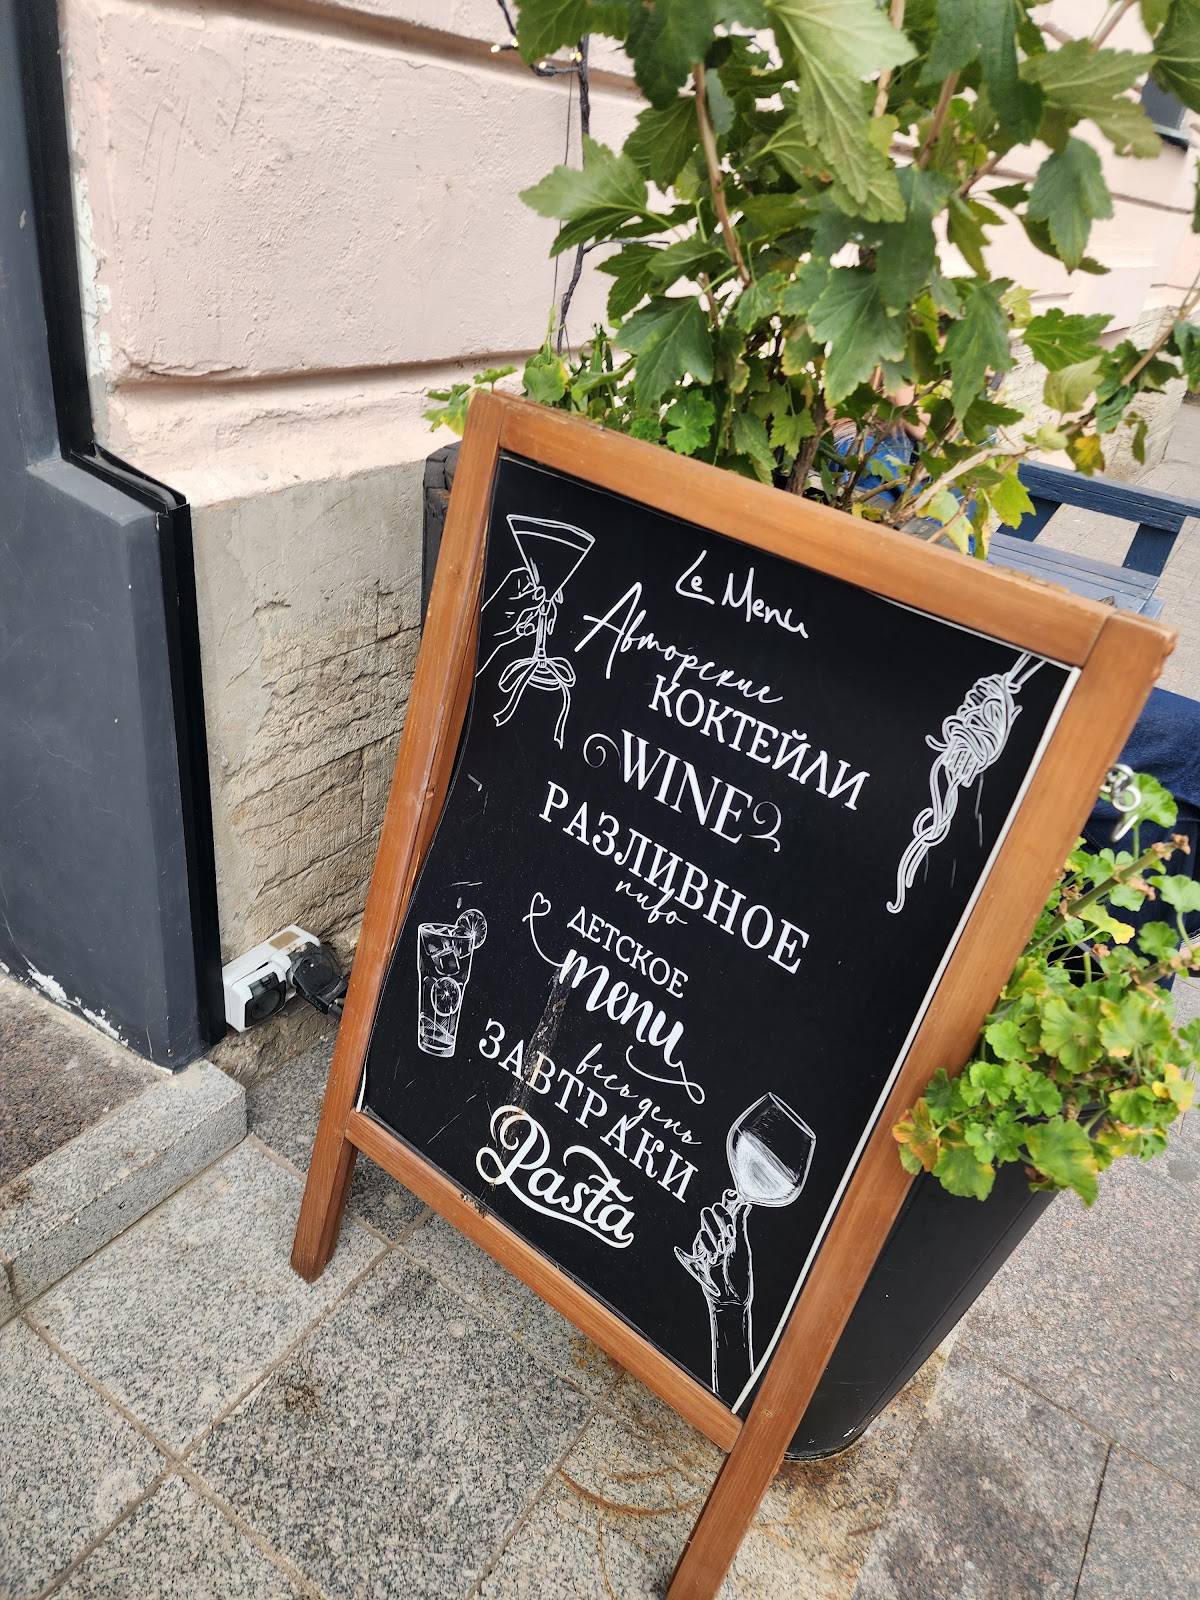 Le Menu
Авторские
КОКТЕЙЛИ
WINE
РАЗЛИВНОЕ
пиво
ДЕТСКОЕ
menu
весь день
ЗАВТРАКИ
Pasta